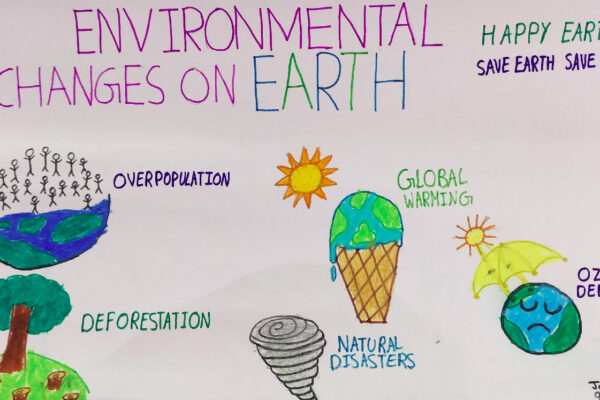 ENVIRONMENTAL
CHANGES ON EARTH
HAPPY
SAVE EARTH SAVE
OVERPOPULATION
GLOBAL
WARMING
DEFORESTATION
NATURAL
DISASTERS